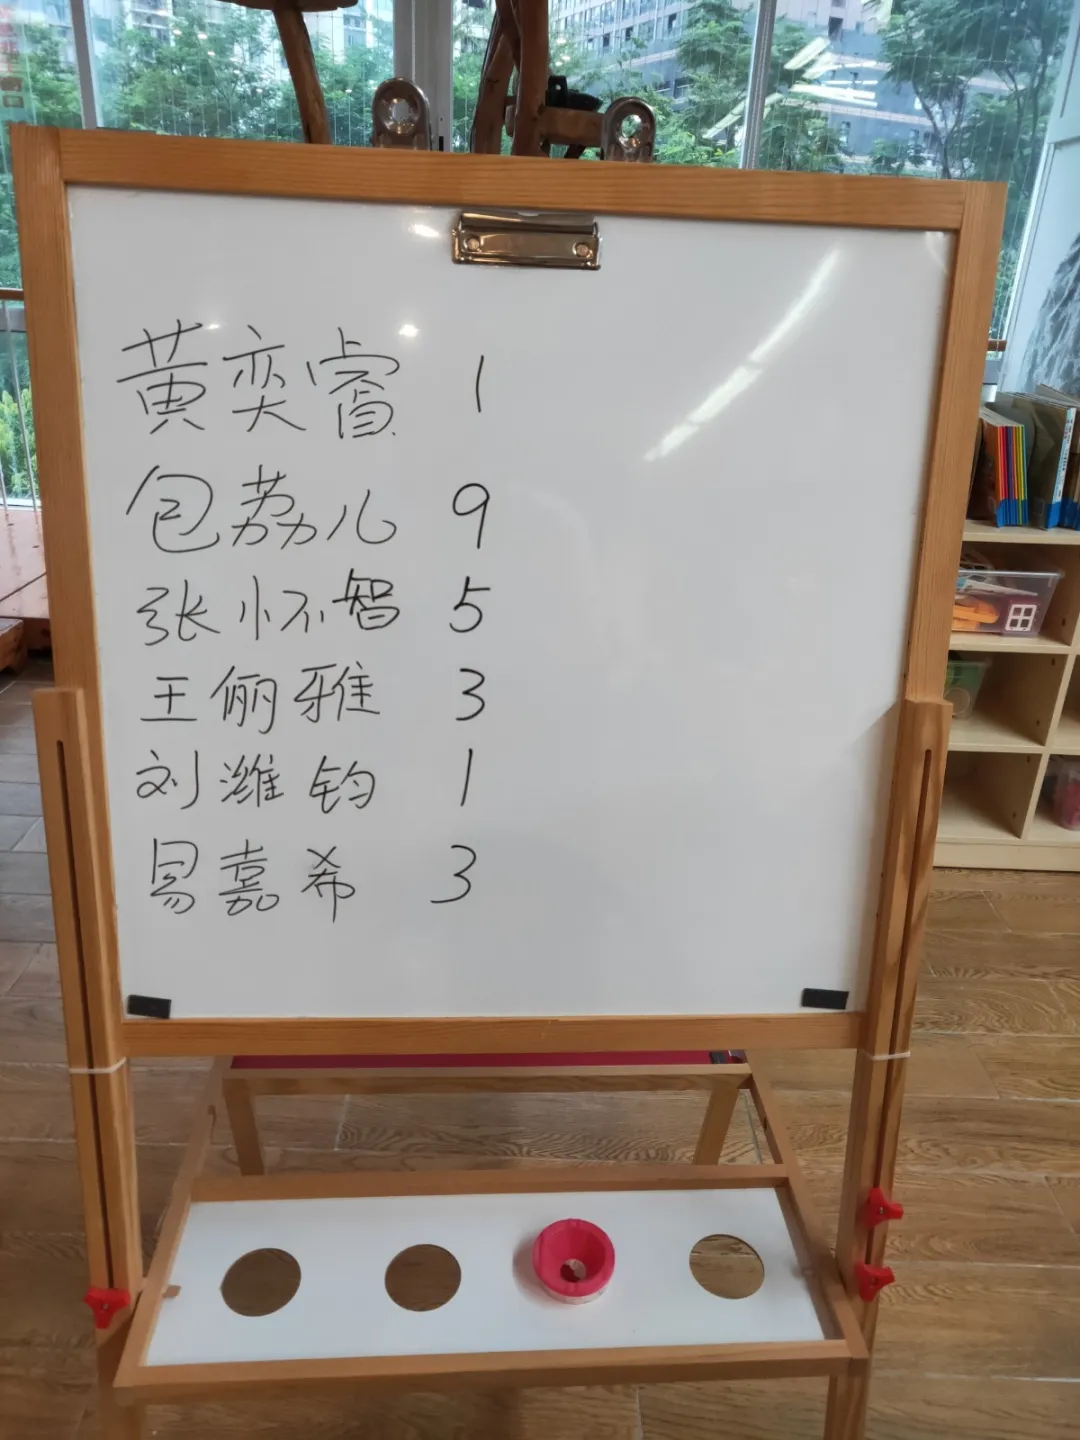 黄奕睿 1
包荔儿 9
张怀智 5
王俪雅 3
刘潍钧 1
易嘉希 3